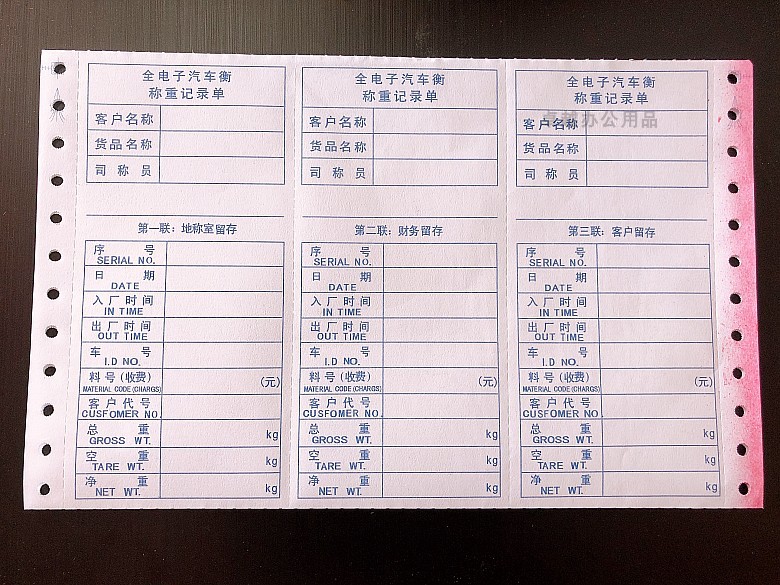 全电子汽车衡
称重记录单
客户名称
货品名称
司称员
第一联：地称室留存
序号
SERIAL NO.
日期
DATE
入厂时间
IN TIME
出厂时间
OUT TIME
车号
I.D NO.
料号(收费)
MATERIAL CODE(CHARGS)
(元)
客户代号
CUSFOMER NO.
总重
GROSS WT.
kg
空重
TARE WT.
kg
净重
NET WT.
kg
全电子汽车衡
称重记录单
客户名称
货品名称
司称员
第二联：财务留存
序号
SERIAL NO.
日期
DATE
入厂时间
IN TIME
出厂时间
OUT TIME
车号
I.D NO.
料号(收费)
MATERIAL CODE(CHARGS)
(元)
客户代号
CUSFOMER NO.
总重
GROSS WT.
kg
空重
TARE WT.
kg
净重
NET WT.
kg
全电子汽车衡
称重记录单
客户名称
卓越办公用品
货品名称
司称员
第三联：客户留存
序号
SERIAL NO.
日期
DATE
入厂时间
IN TIME
出厂时间
OUT TIME
车号
I.D NO.
料号(收费)
MATERIAL CODE(CHARGS)
(元)
客户代号
CUSFOMER NO.
总重
GROSS WT.
kg
空重
TARE WT.
kg
净重
NET WT.
kg